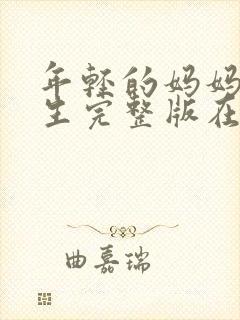 年轻的妈妈
生完整版在
曲嘉瑞